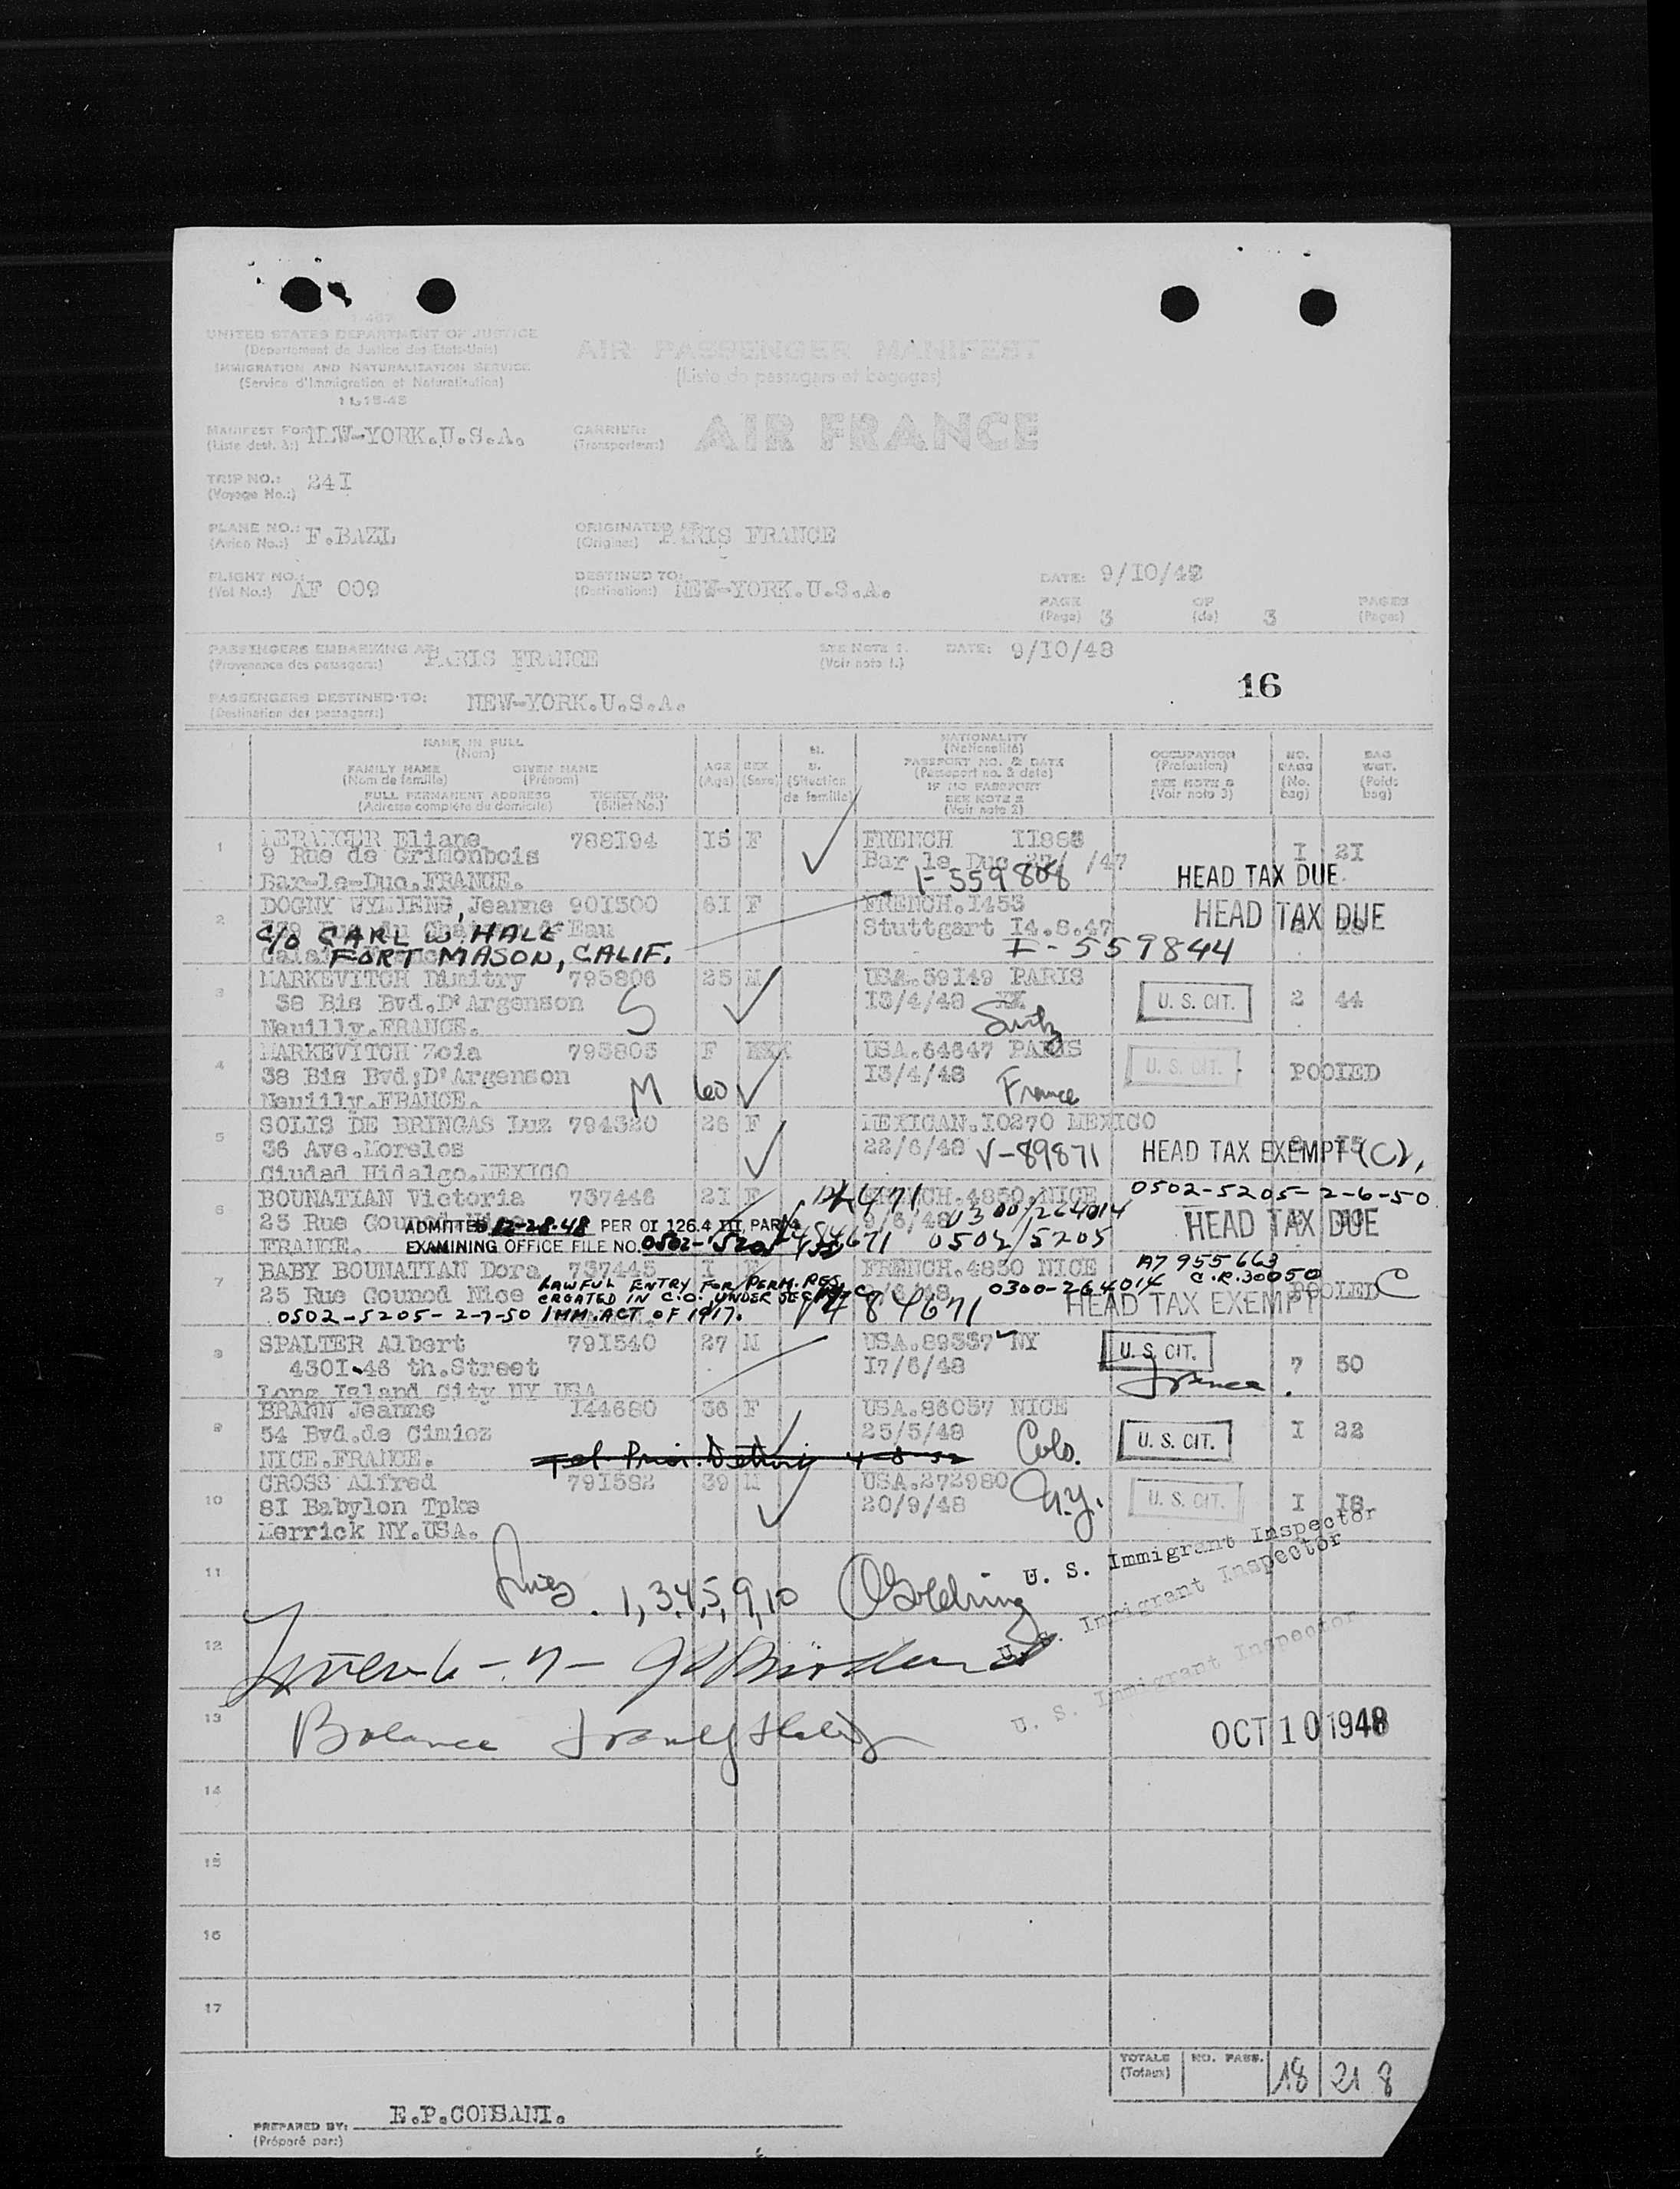 I-467
UNITED STATES DEPARTMENT OF JUSTICE
(Departement de Justice des Etats-Unis)
IMMIGRATION AND NATURALIZATION SERVICE
(Service d'Immigration et Naturalisation)
11-15-45
AIR PASSENGER MANIFEST
(Liste de passagers et bagages)
MANIFEST FOR NEW-YORK.U.S.A.
(Liste dest. à:)
CARRIER: AIR FRANCE
(Transporteur:)
TRIP NO.: 24I
(Voyage No.:)
PLANE NO.: F.BAZL
(Avion No.:)
ORIGINATED AT PARIS FRANCE
(Origine:)
FLIGHT NO.: AF 009
(Vol No.:)
DESTINED TO: NEW-YORK.U.S.A.
(Destination:)
DATE: 9/IO/48
PAGE 3 OF 3 PAGES
(Page) (de) (Pages)
PASSENGERS EMBARKING AT: PARIS FRANCE
(Provenance des passagers:)
SEE NOTE 1.
(Voir note 1.)
DATE: 9/IO/48
16
PASSENGERS DESTINED TO: NEW-YORK.U.S.A.
(Destination des passagers:)
NAME IN FULL
(Nom)
FAMILY NAME GIVEN NAME
(Nom de famille) (Prénom)
FULL PERMANENT ADDRESS TICKET NO.
(Adresse complète du domicile) (Billet No.)
AGE
(Age)
SEX
(Sexe)
M.
S.
(Situation
de famille)
NATIONALITY
(Nationalité)
PASSPORT NO. & DATE
(Passeport no. & date)
IF NO PASSPORT
SEE NOTE 2
(Voir note 2)
OCCUPATION
(Profession)
SEE NOTE 3
(Voir note 3)
NO.
BAGS
(No.
bag)
BAG
WGT.
(Poids
bag)
1 Eliane 788I94 I5 F FRENCH I I 2I
9 Rue de Grimonbois Bar le Duc /47
Bar-le-Duc.FRANCE. I-559808 HEAD TAX DUE
2 DOGNY WYMIENS, Jeanne 90I500 6I F FRENCH.I453 HEAD TAX DUE
C/O CARL W. HALE Stuttgart I4.8.47
FORT MASON, CALIF. I-559844
3 MARKEVITCH Dimitry 795806 25 M USA.59I49 PARIS U. S. CIT. 2 44
38 Bis Bvd.D'Argenson S I3/4/48
Neuilly.FRANCE. Switz
4 MARKEVITCH Zoia 795805 F USA.64647 PARIS U. S. CIT. POOLED
38 Bis Bvd;D'Argenson M 60 I3/4/48
Neuilly.FRANCE. France
5 SOLIS DE BRINGAS Luz 794320 28 F MEXICAN.I0270 MEXICO
36 Ave.Morelos 22/6/48 V-89871 HEAD TAX EXEMPT (C),
Ciudad Hidalgo.MEXICO
6 BOUNATIAN Victoria 737446 2I F FRENCH.4850.NICE 0502-5205-2-6-50
25 Rue Gounod 0300/264014 HEAD TAX DUE
ADMITTED 12-28-48 PER OI 126.4 III PAR
FRANCE. EXAMINING OFFICE FILE NO. 0502/5205
7 BABY BOUNATIAN Dora 737445 I F FRENCH.4850 NICE A7 955 663
25 Rue Gounod Nice LAWFUL ENTRY FOR PERM. RES. 0300-264014 C.R.30050 POOLED C
CREATED IN C.O. UNDER SEC HEAD TAX EXEMPT
0502-5205-2-7-50 IMM. ACT OF 1917. V484671
8 SPALTER Albert 79I540 27 M USA.89537 NY U. S. CIT. 7 50
430I-46 th.Street I7/6/48 France
Long Island City NY USA
9 BRANN Jeanne I44680 36 F USA.86057 NICE U. S. CIT. I 22
54 Bvd.de Cimiez 25/5/48 Colo.
NICE.FRANCE.
10 CROSS Alfred 79I582 39 M USA.272980 U. S. CIT. I I8
8I Babylon Tpke 20/9/48 N.Y.
Merrick NY.USA.
U. S. Immigrant Inspector
11 1,3,4,5,9,10 Goldring
U. S. Immigrant Inspector
12
U. S. Immigrant Inspector
13 Balance
OCT 10 1948
14
15
16
17
TOTALS NO. PASS. 18 218
(Totaux)
PREPARED BY:
(Préparé par:)